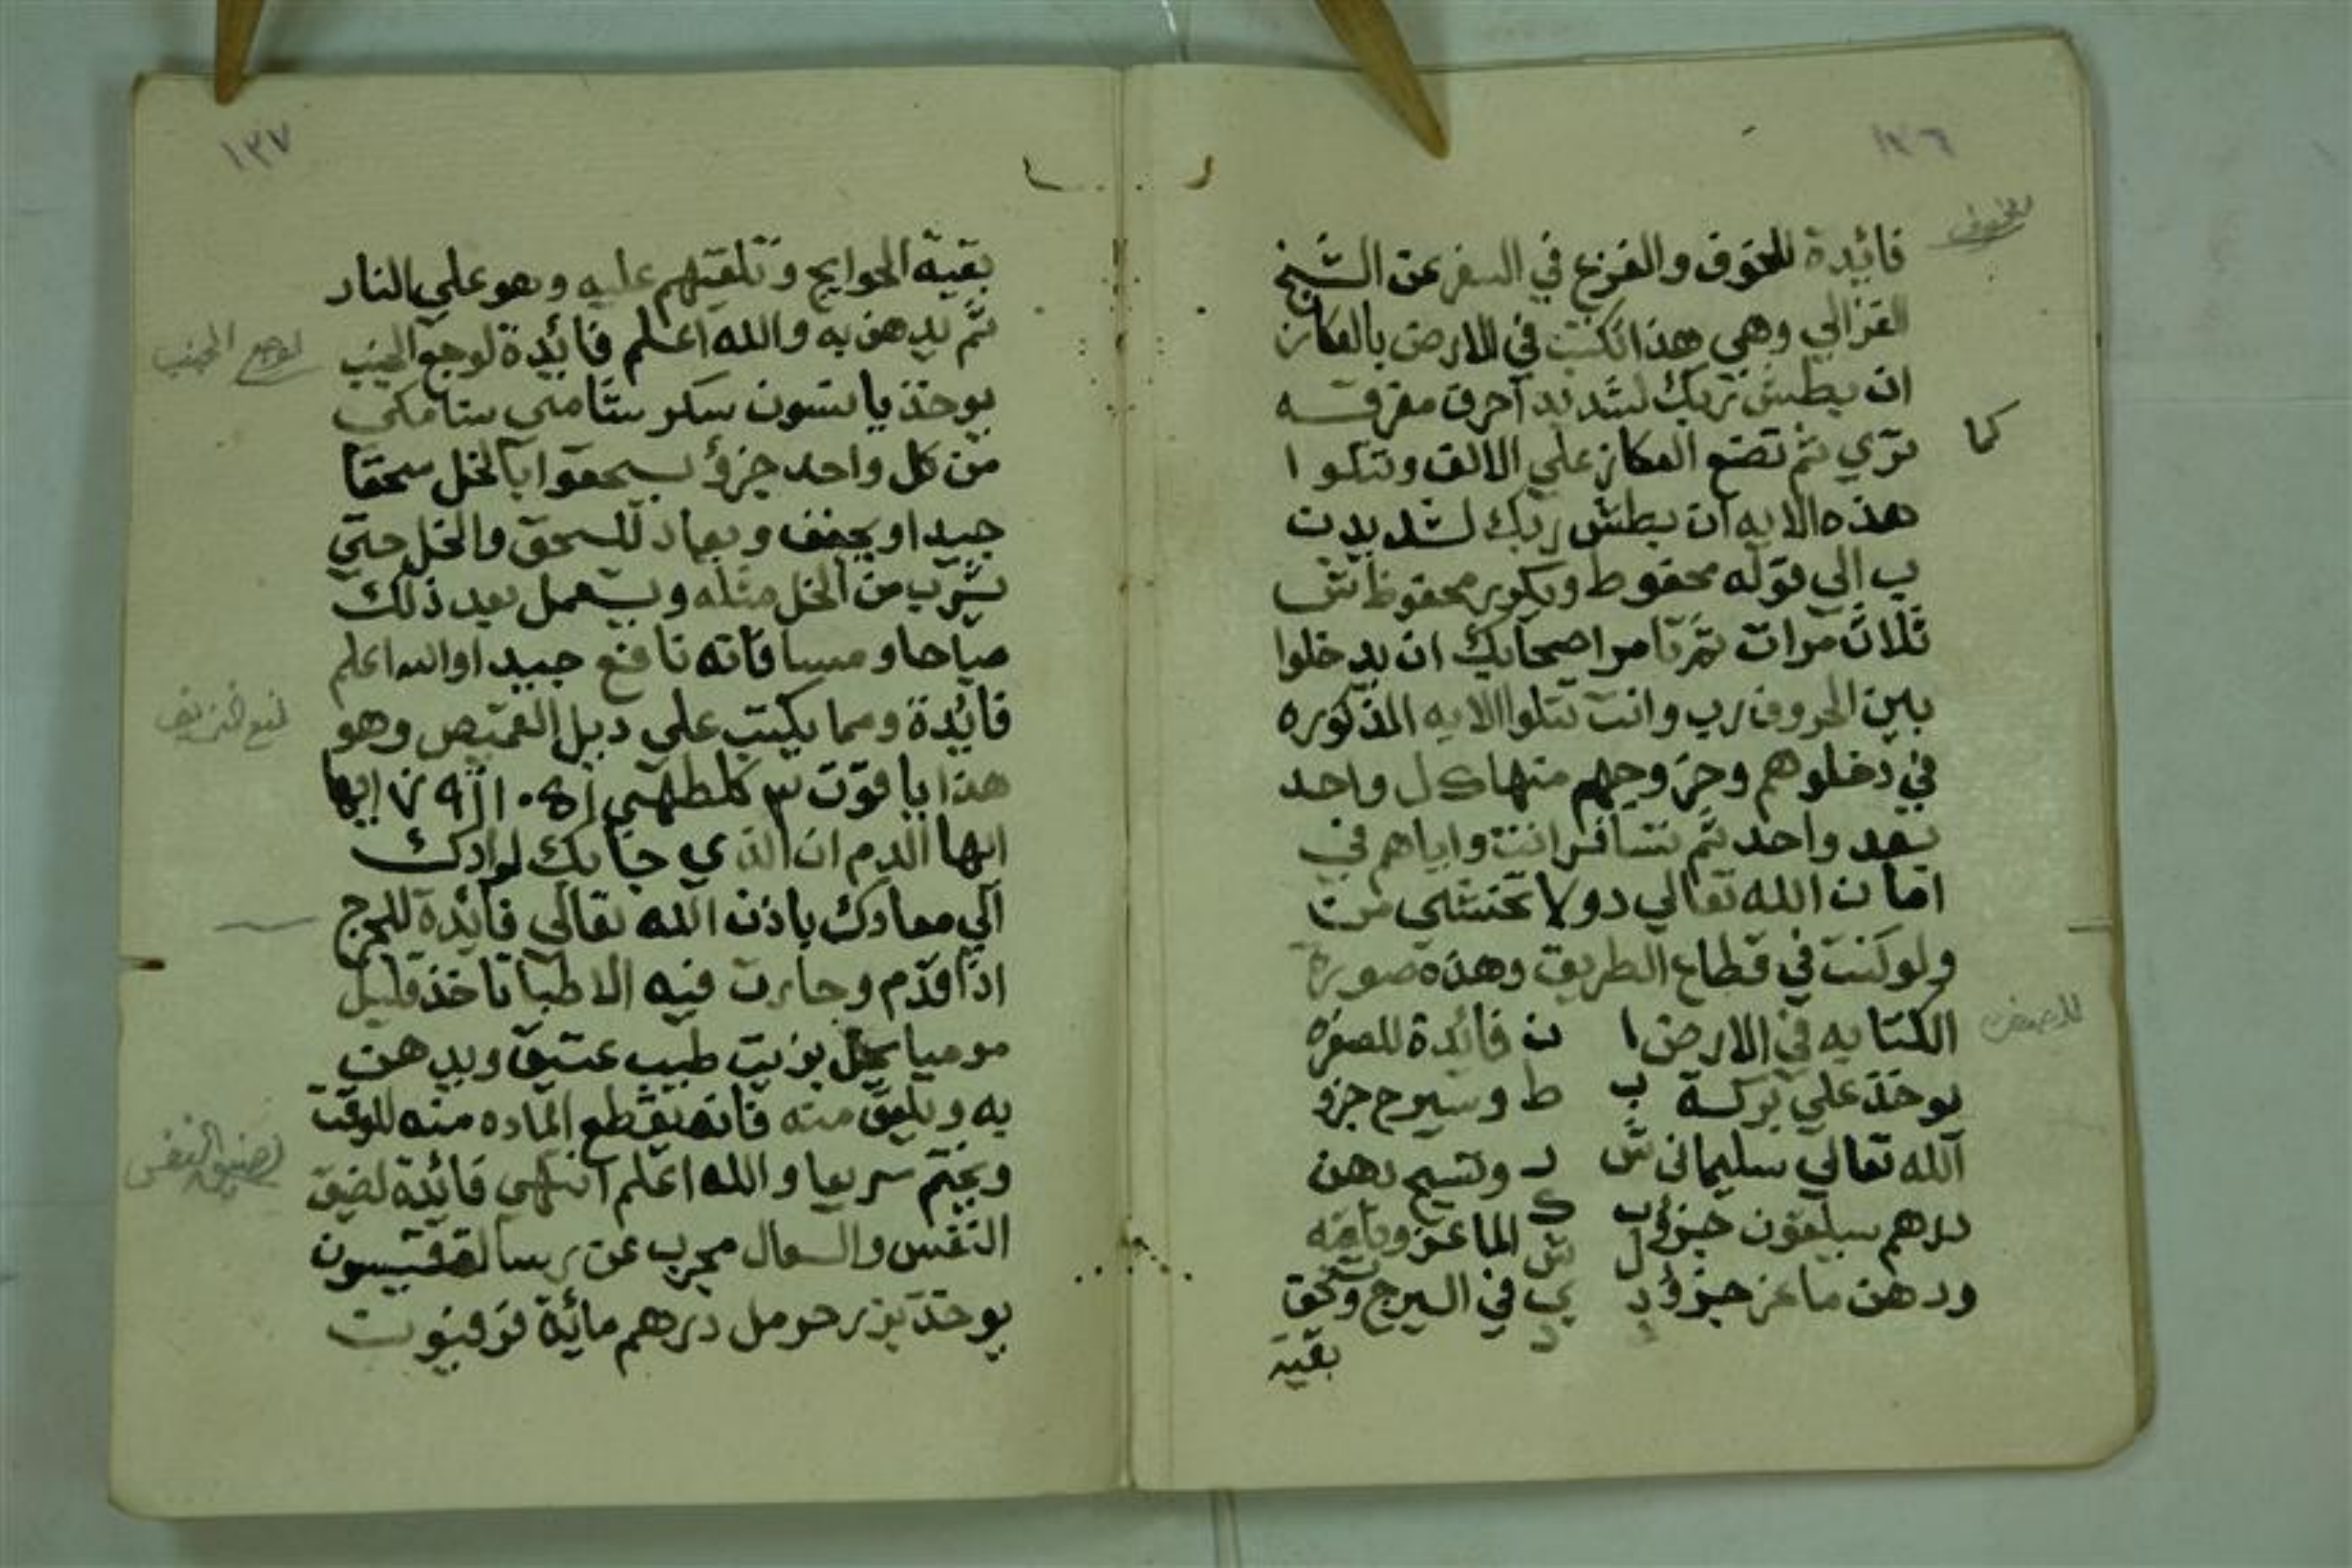 ١٣٦
للخوف
فائدة للخوف والفزع في السفر عن الشيخ
الغزالي وهي هذا تكتب في الارض بالعكاز
ان بطش ربك لشديد احرف مفرقه
كما
تري ثم تضع العكاز علي الالف وتتلوا
هذه الايه ان بطش ربك لشديد ت
ب الي قوله محفوظ وتكرر محفوظ
ثلاث مرات ثم تامر اصحابك ان يدخلوا
بين الحروف رب وانت تتلوا الايه المذكوره
في دخلوهم وخروجهم منها كل واحد
بعد واحد ثم تسافر انت واياهم في
امان الله تعالي دولا تختشي من
ولو كنت في قطاع الطريق وهذه صورة
الكتابه في الارض ا ن فائدة للصفره
يوخذ علي بركة ب ط وسيرج جزو
الله تعالي سليماني ش ر وتسيح دهن
درهم سيلقون جزؤ ب ك الماعز وتلقه
ودهن ماعز جزؤ د ل ش ي د في السيرج وتحق
بقية
١٣٧
بقية الحوايج وتلقيهم عليه وهو علي النار
ثم يدهن به والله اعلم فائدة لوجع الجنب
لوجع الجنب
يوخذ يانسون سكر سنامي سنامكي
من كل واحد جزؤ يسحقوا بالخل سحقا
جيدا ويجفف ويعاد للسحق والخل حتي
يشرب من الخل مثله ويستعمل بعد ذلك
صباحا ومسا فانه نافع جيدا والله اعلم
فائدة ومما يكتب علي ديل القميص وهو
هذا ياقوت ٣ كلطهي ايها
ايها الدم ان الذي جابك لوادك
الي معادك باذن الله تعالي فائدة للجرح
اذا قدم وحارت فيه الاطبا تاخذ قليل
موميا يحل بزيت طيب عتيق ويدهن
به ويلعق منه فانه يقطع الماده منه للوقت
ويختم سريعا والله اعلم انتهي فائدة لضيق
لضيق النفس
النفس والسعال مجرب عن رسالة
يوخذ بزر حرمل درهم مائة